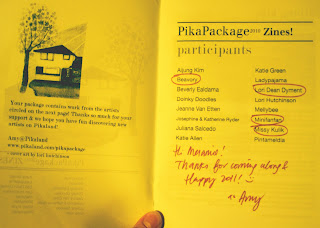 Your package contains work from the artists
circled on the next page! Thanks so much for your
support & we hope you have fun discovering new
artists on Pikaland!
Amy@Pikaland
www.pikaland.com/pikapackage
cover art by Lori Hutchinson
PikaPackage Zines!
participants
Aijung Kim
Beavory
Beverly Ealdama
Doinky Doodles
Jeanna Van Etten
Josephine & Katherine Ryder
Juliana Salcedo
Katie Allen
Katie Green
Ladypajama
Lori Dean Dyment
Lori Hutchinson
Mellybee
Minifanfan
Missy Kulik
Pintameldia
Hi Mennis!
Thanks for coming along &
Happy 2011! :)
Amy